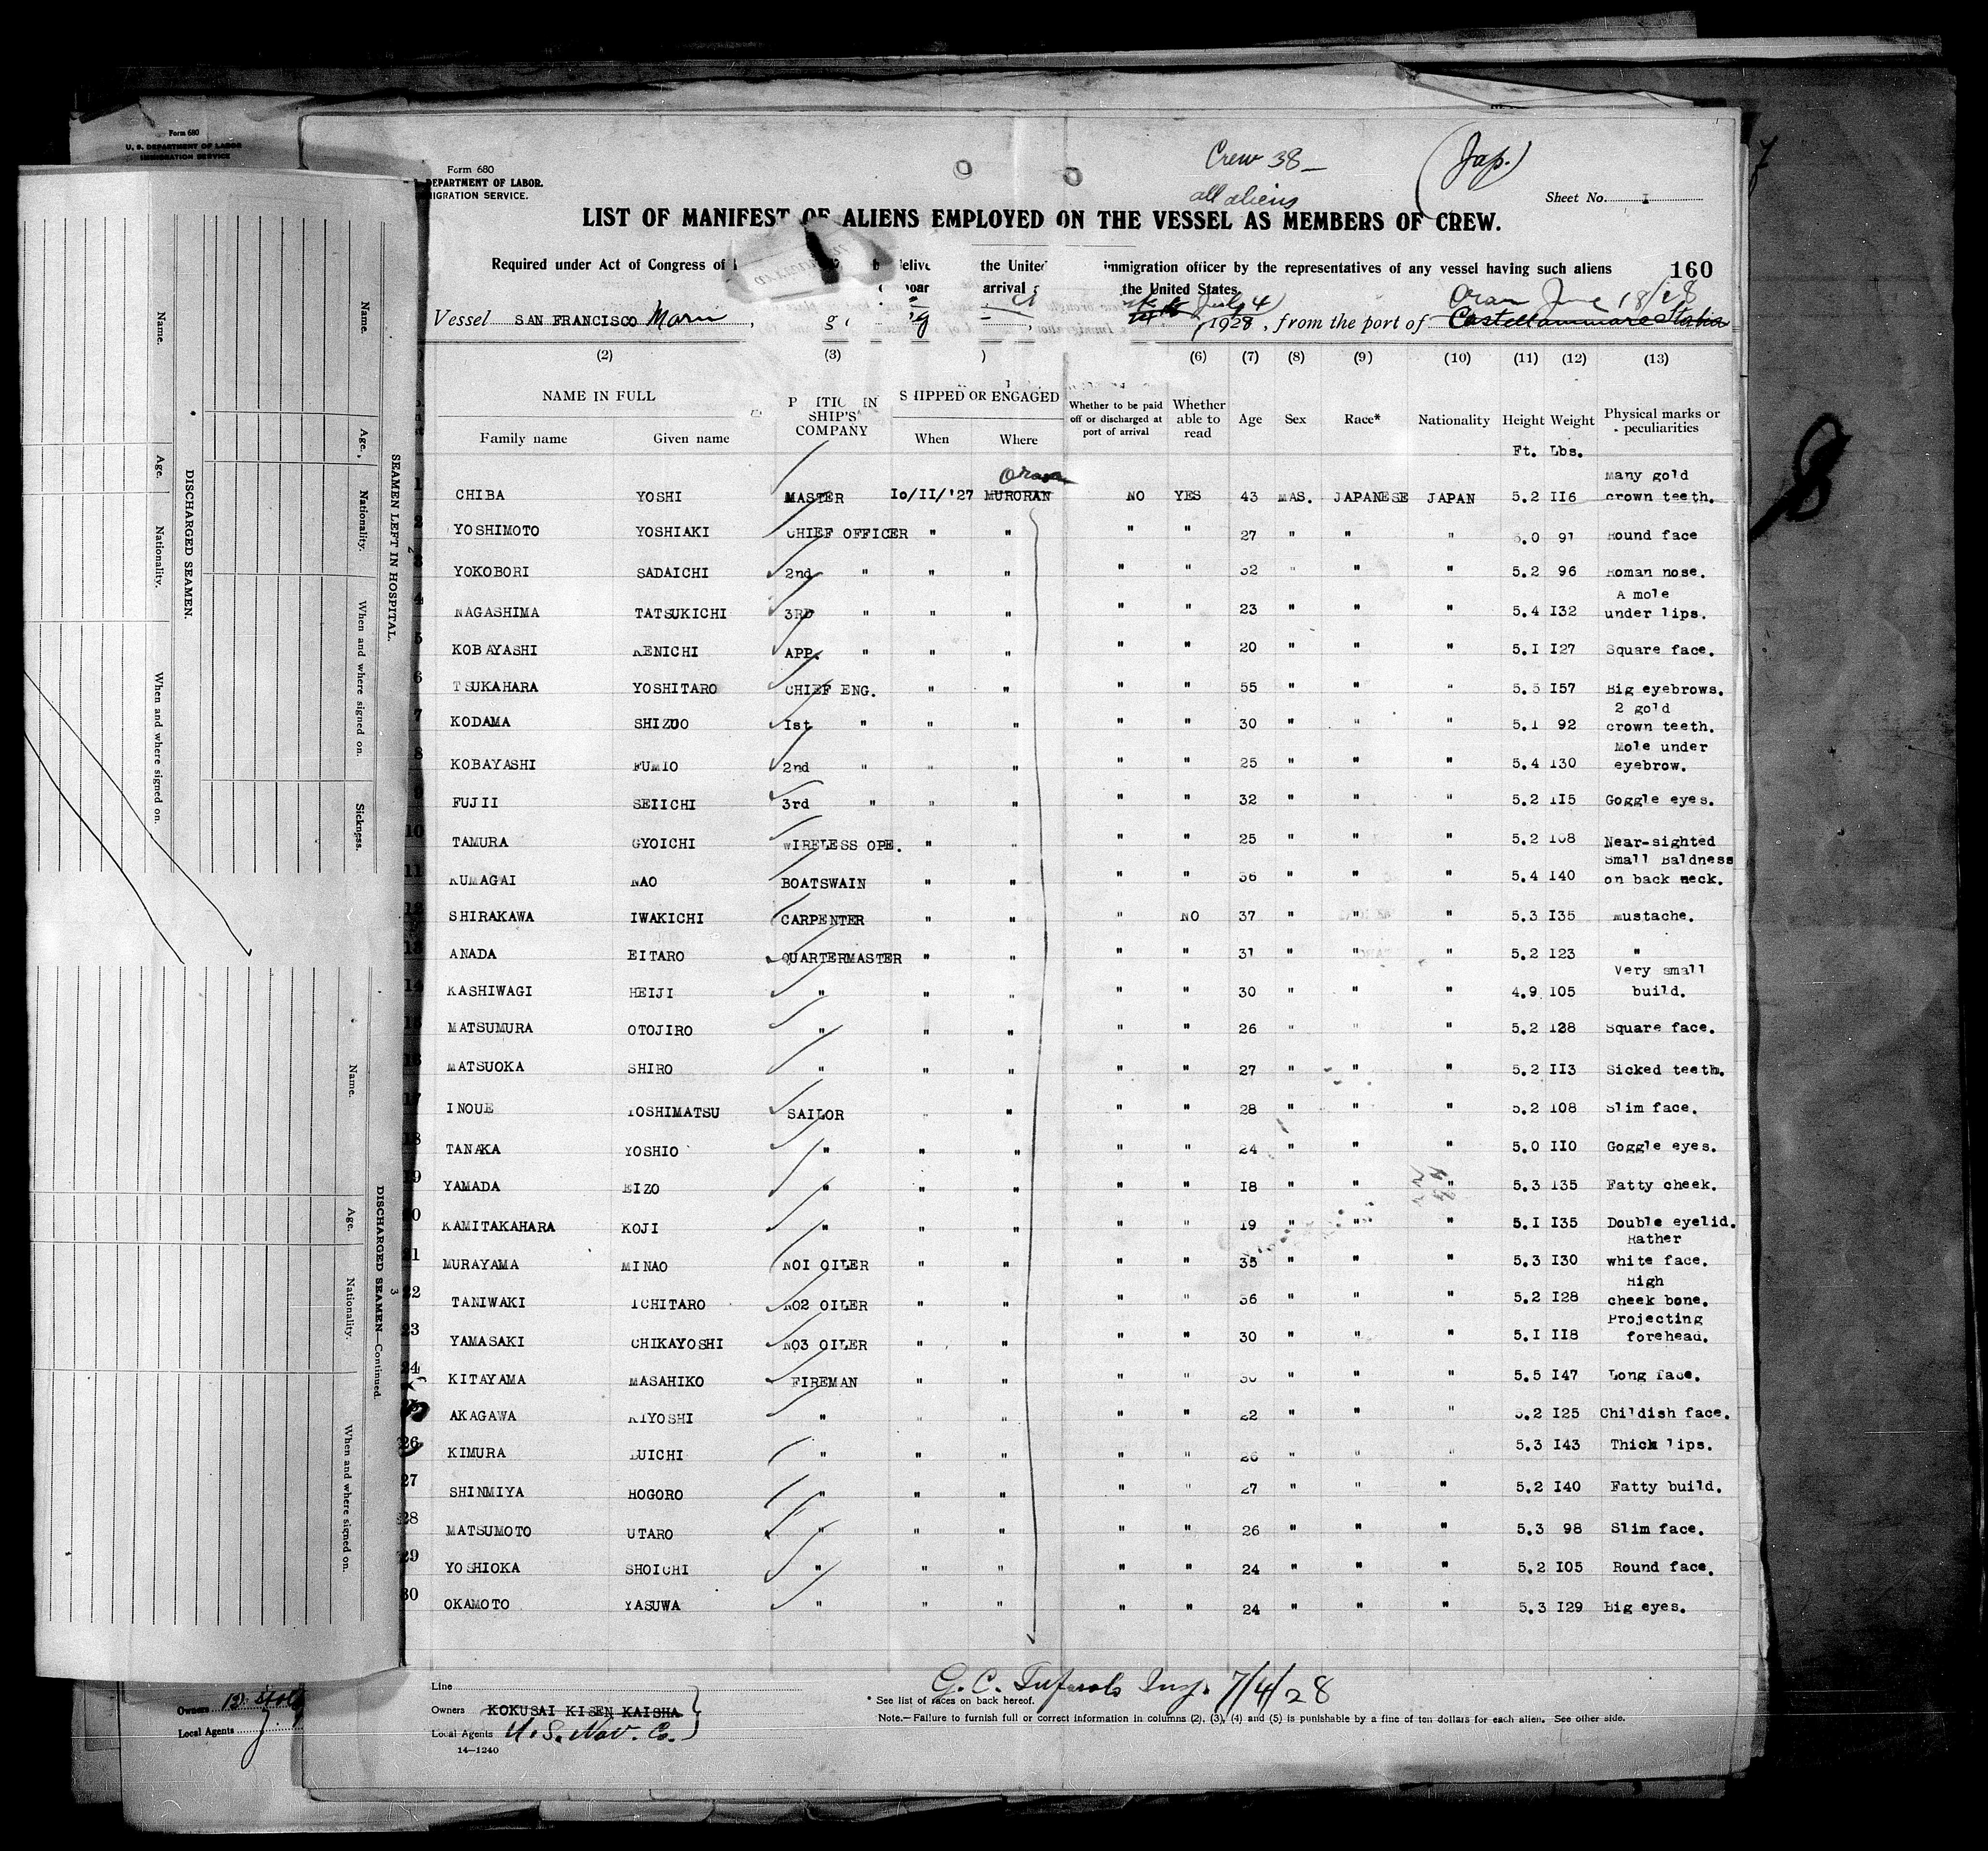 Form 680
U. S. DEPARTMENT OF LABOR
IMMIGRATION SERVICE
Form 680
DEPARTMENT OF LABOR.
MIGRATION SERVICE.
Crew 38 –
all aliens
(Jap.)
Sheet No. 1
LIST OF MANIFEST OF ALIENS EMPLOYED ON THE VESSEL AS MEMBERS OF CREW.
Required under Act of Congress of the United immigration officer by the representatives of any vessel having such aliens
160
arrival the United States
Oran June 18/28
Vessel SAN FRANCISCO Maru, July 4, 1928, from the port of Castellammare Stabia
(2) (3) (6) (7) (8) (9) (10) (11) (12) (13)
NAME IN FULL
SHIP'S COMPANY
SHIPPED OR ENGAGED
Whether to be paid off or discharged at port of arrival
Whether able to read
Age Sex Race* Nationality Height Weight
Physical marks or peculiarities
Family name Given name When Where
Ft. Lbs.
Oran
1 CHIBA YOSHI MASTER Io/II/'27 MURORAN NO YES 43 MAS. JAPANESE JAPAN 5.2 II6 Many gold crown teeth.
2 YOSHIMOTO YOSHIAKI CHIEF OFFICER " " " " 27 " " " 5.0 91 Round face
3 YOKOBORI SADAICHI 2nd " " " " " 32 " " " 5.2 96 Roman nose.
4 NAGASHIMA TATSUKICHI 3RD " " " " " 23 " " " 5.4 I32 A mole under lips.
5 KOBAYASHI KENICHI APP. " " " " " 20 " " " 5.I I27 Square face.
6 TSUKAHARA YOSHITARO CHIEF ENG. " " " " 55 " " " 5.5 I57 Big eyebrows.
7 KODAMA SHIZUO Ist " " " " " 30 " " " 5.1 92 2 gold crown teeth.
8 KOBAYASHI FUMIO 2nd " " " " " 25 " " " 5.4 130 Mole under eyebrow.
9 FUJII SEIICHI 3rd " " " " " 32 " " " 5.2 115 Goggle eyes.
10 TAMURA GYOICHI WIRELESS OPE. " " " " 25 " " " 5.2 108 Near-sighted
11 KUMAGAI NAO BOATSWAIN " " " " 36 " " " 5.4 I40 Small Baldness on back neck.
12 SHIRAKAWA IWAKICHI CARPENTER " " " NO 37 " " " 5.3 I35 mustache.
13 ANADA EITARO QUARTERMASTER " " " " 31 " " " 5.2 I23 "
14 KASHIWAGI HEIJI " " " " " 30 " " " 4.9 I05 Very small build.
15 MATSUMURA OTOJIRO " " " " " 26 " " " 5.2 128 Square face.
16 MATSUOKA SHIRO " " " " " 27 " " " 5.2 II3 Sicked teeth.
17 INOUE YOSHIMATSU SAILOR " " " " 28 " " " 5.2 108 Slim face.
18 TANAKA YOSHIO " " " " " 24 " " " 5.0 II0 Goggle eyes.
19 YAMADA EIZO " " " " " I8 " " " 5.3 135 Fatty cheek.
20 KAMITAKAHARA KOJI " " " " " 19 " " " 5.I I35 Double eyelid.
21 MURAYAMA MINAO NO1 OILER " " " " 35 " " " 5.3 I30 Rather white face.
22 TANIWAKI ICHITARO NO2 OILER " " " " 36 " " " 5.2 I28 High cheek bone.
23 YAMASAKI CHIKAYOSHI NO3 OILER " " " " 30 " " " 5.I II8 Projecting forehead.
24 KITAYAMA MASAHIKO FIREMAN " " " " 30 " " " 5.5 I47 Long face.
25 AKAGAWA KIYOSHI " " " " " 22 " " " 5.2 I25 Childish face.
26 KIMURA UICHI " " " " " 26 " " " 5.3 I43 Thick lips.
27 SHINMIYA HOGORO " " " " " 27 " " " 5.2 I40 Fatty build.
28 MATSUMOTO UTARO " " " " " 26 " " " 5.3 98 Slim face.
29 YOSHIOKA SHOICHI " " " " " 24 " " " 5.2 I05 Round face.
30 OKAMOTO YASUWA " " " " " 24 " " " 5.3 I29 Big eyes.
Line
Owners KOKUSAI KISEN KAISHA
Local Agents U.S. Nav. Co.
14—1240
G. C. Insp. 7/4/28
* See list of races on back hereof.
Note.—Failure to furnish full or correct information in columns (2), (3), (4) and (5) is punishable by a fine of ten dollars for each alien. See other side.
SEAMEN LEFT IN HOSPITAL.
Name. Age. Nationality. When and where signed on. Sickness.
DISCHARGED SEAMEN.
Name. Age. Nationality. When and where signed on.
DISCHARGED SEAMEN—Continued.
Name. Age. Nationality. When and where signed on.
Owners
Local Agents